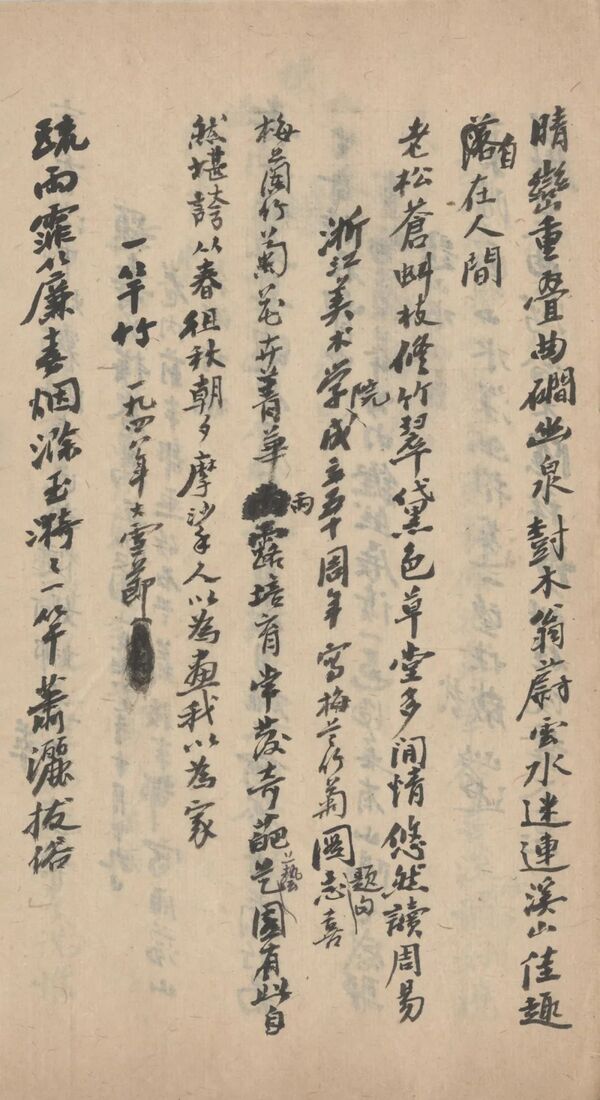 晴巒重疊曲磵幽泉樹木蓊蔚雲水迷連溪山佳趣
自落在人間
老松蒼虯枝修竹翠黛色草堂多閒情悠然讀周易
浙江美术学院成立五十周年寫梅兰竹菊圖題句志喜
梅蘭竹菊花卉菁華雨露培育常发奇葩藝園有此自
然堪誇从春徂秋朝夕摩挲人以為畫我以為家
一竿竹 一九四八年大雪節
疏雨霏〻簾春烟滌玉漪〻一竿蕭灑拔俗